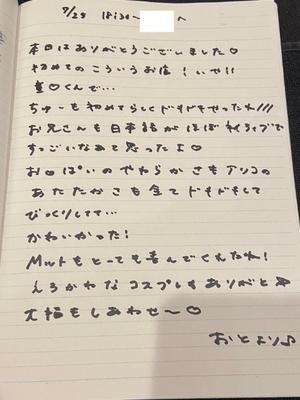 7/25 18:30〜 へ
本日はありがとうございました♡
初めてのこういうお店！いや!!
童○くんで…
ちゅーも初めてらしくドキドキやったね///
お兄さんも日本語がほぼネイティブで
すっごいなぁて思ったよ♡
お○ぱいのやわらかさもアソコの
あたたかさも全てドキドキして
びっくりしてて…
かわいかった！
Mットもとっても喜んでくれたね！
えろかわなコスプレもありがと
大福もしあわせ〜♡
おとより♪